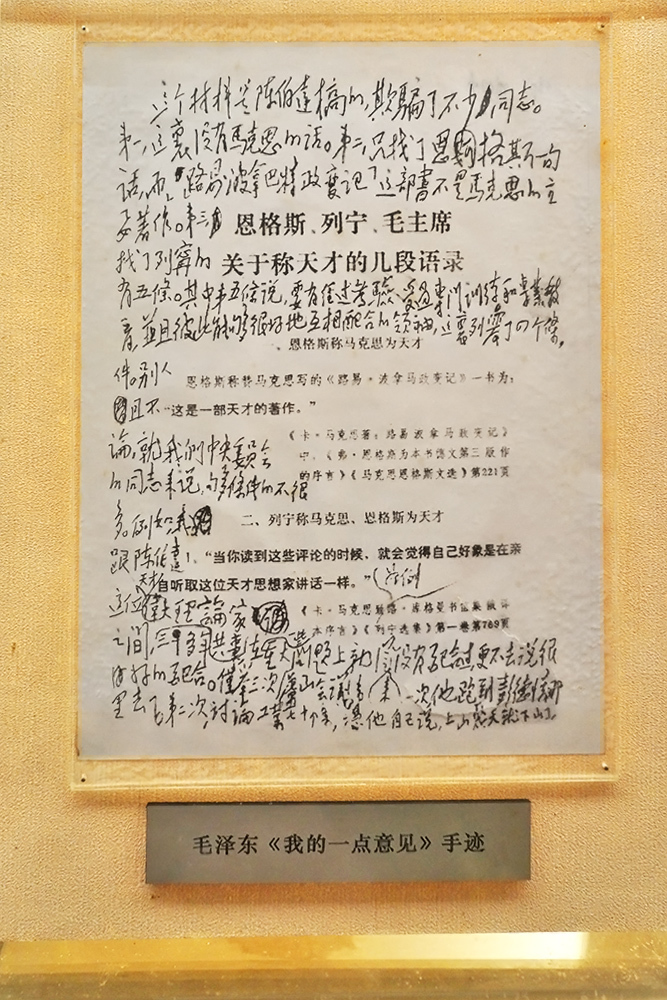 这个材料是陈伯达搞的,欺骗了不少同志。
第一,这裏没有馬克思的话。第二,只找了恩格斯一句
话,而“路易·波拿巴特政变记”这部書不是馬克思的主
要著作。第三,
恩格斯、列宁、毛主席
找了列寧的
关于称天才的几段语录
有五條。其中第五條说,要有经过考驗、受过專门训练和長期教
育,並且彼此能够很好地互相配合的领袖,这裏列寧了四个條
一、恩格斯称马克思为天才
件。别人
恩格斯称赞马克思写的《路易·波拿马政变记》一书为:
且不
“这是一部天才的著作。”
《卡·马克思著:路易波拿马政变记》
中,《弗·恩格斯为本书德文第三版作
的序言》《马克思恩格斯文选》第221页
論,就我們中央委員会
的同志来说,够條件的不很
多。例如,我
二、列宁称马克思、恩格斯为天才
跟陈伯達
1、“当你读到这些评论的时候,就会觉得自己好象是在亲
自听取这位天才思想家讲话一样。”
这位
天才
理論家
《卡·马克思致路·库格曼书信集俄译
本序言》《列宁选集》第一卷第769页
之间,三十多年,在重大问题上就没有配合过,更不去说很
好的配合。僅举三次庐山会議为例。第一次,他跑到彭德懷那
里去了。第二次,討論工業七十條,據他自己说,上山幾天就下山了
毛泽东《我的一点意见》手迹